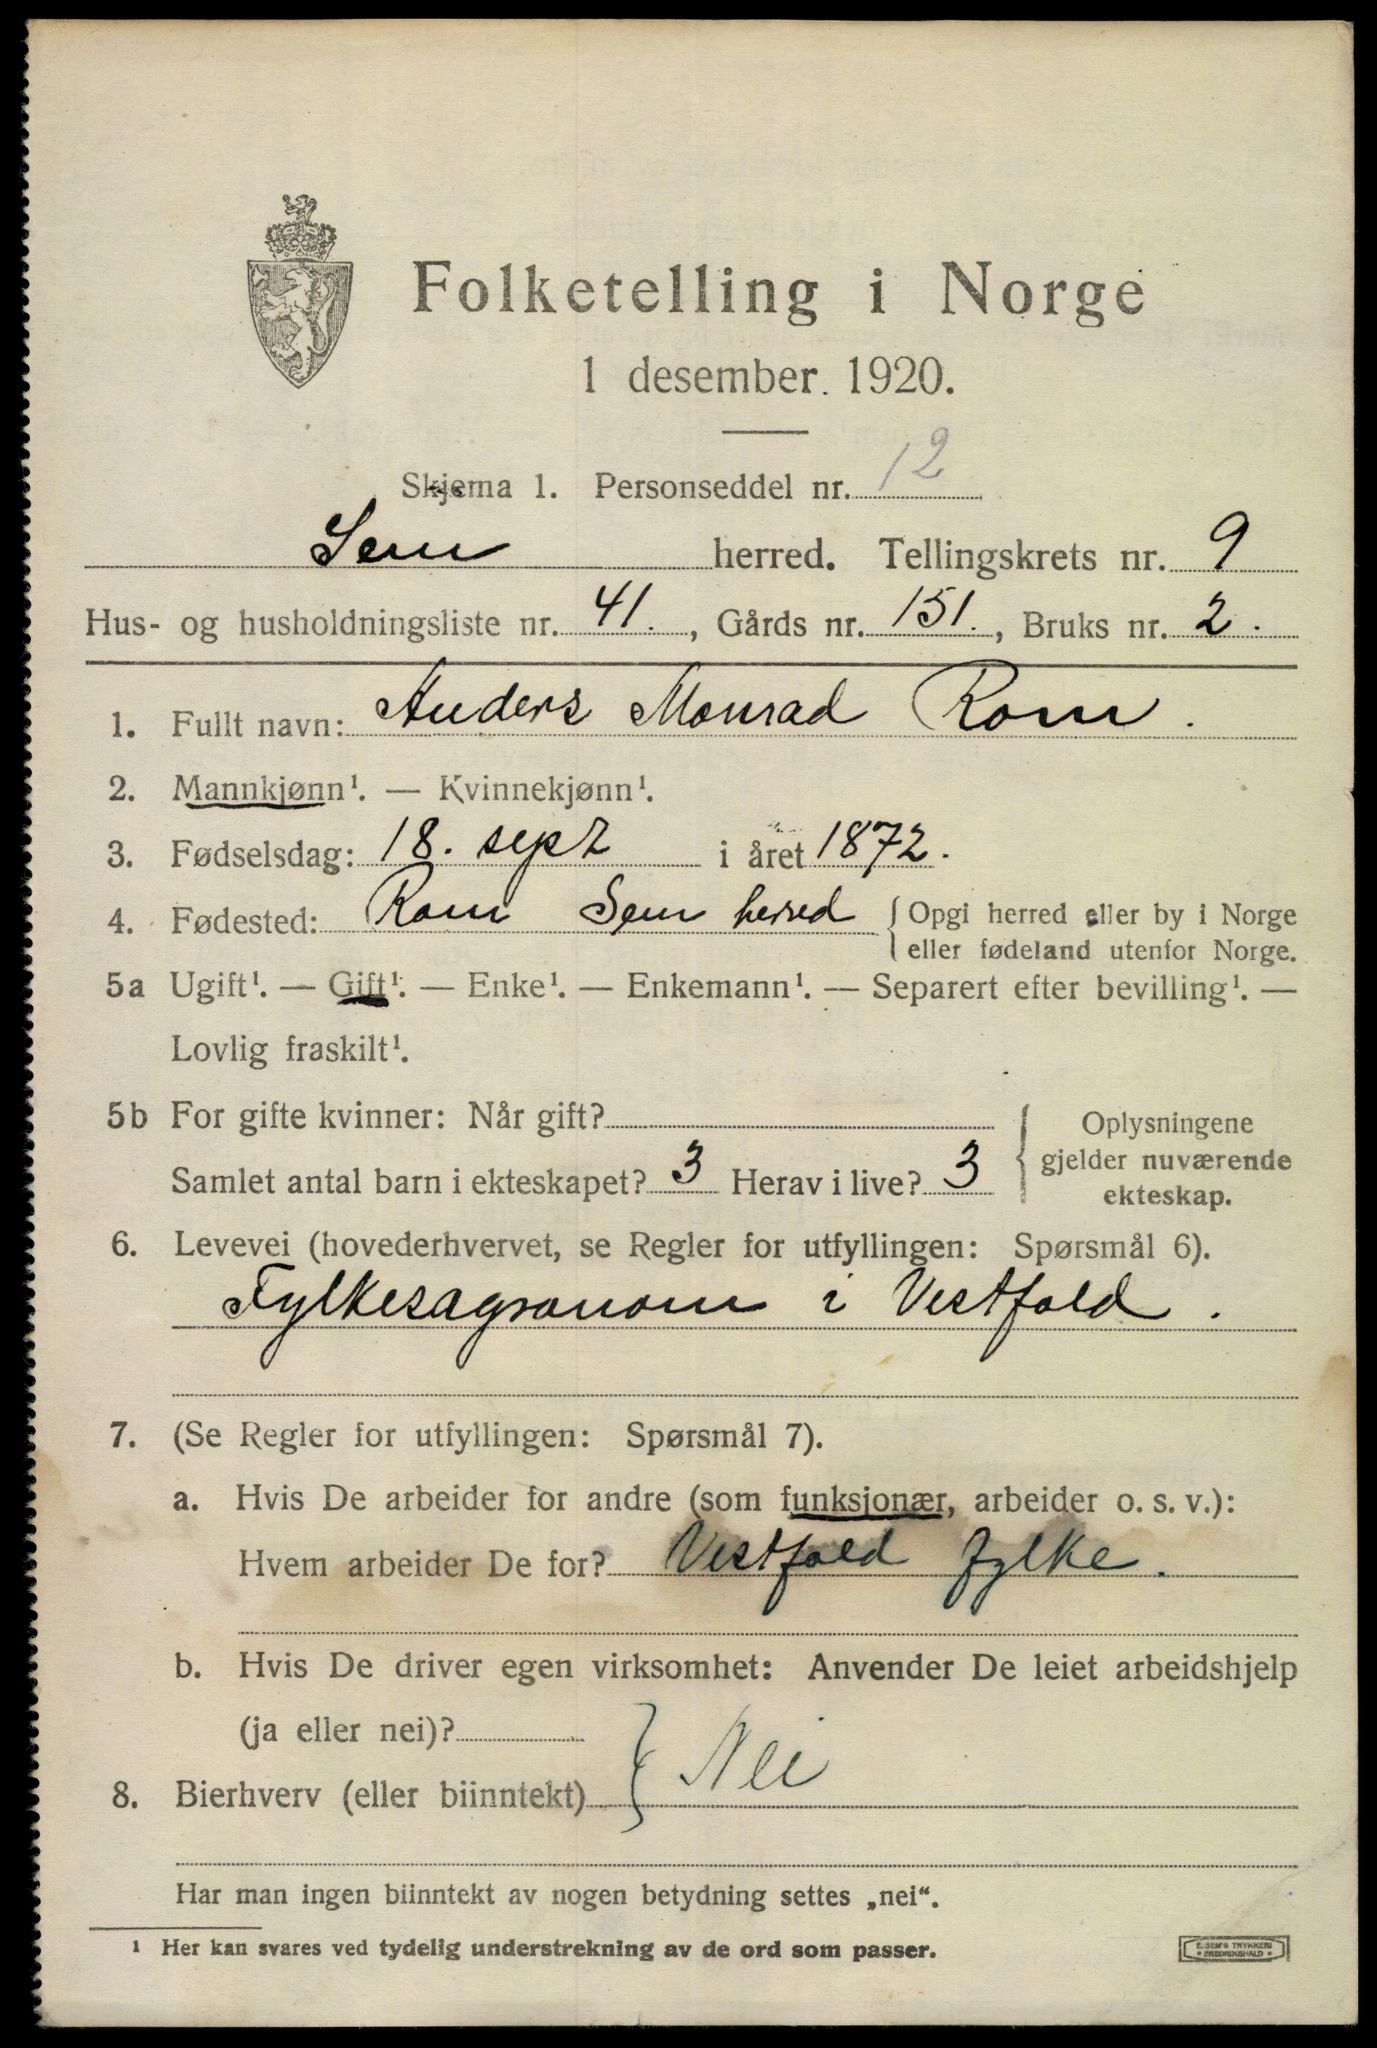 Folketelling i Norge
1 desember 1920.
Skjema 1. Personseddel nr. 12
Sem herred. Tellingskrets nr. 9
Hus- og husholdningsliste nr. 41. , Gårds nr. 151. , Bruks nr. 2.
1. Fullt navn: Anders Monrad Rom.
2. Mannkjønn¹. — Kvinnekjønn¹.
3. Fødselsdag: 18. sept i året 1872.
4. Fødested: Rom Sem herred { Opgi herred eller by i Norge
eller fødeland utenfor Norge.
5a Ugift¹. — Gift¹. — Enke¹. — Enkemann¹. — Separert efter bevilling¹. —
Lovlig fraskilt¹.
5b For gifte kvinner: Når gift?
Samlet antal barn i ekteskapet? 3 Herav i live? 3
{ Oplysningene
gjelder nuværende
ekteskap.
6. Levevei (hovederhvervet, se Regler for utfyllingen: Spørsmål 6).
Fylkesagronom i Vestfold.
7. (Se Regler for utfyllingen: Spørsmål 7).
a. Hvis De arbeider for andre (som funksjonær, arbeider o. s. v.):
Hvem arbeider De for? Vestfold fylke.
b. Hvis De driver egen virksomhet: Anvender De leiet arbeidshjelp
(ja eller nei)? } Nei
8. Bierhverv (eller biinntekt)
Har man ingen biinntekt av nogen betydning settes „nei“.
¹ Her kan svares ved tydelig understrekning av de ord som passer.
E. SEM'S TRYKKERI
FREDRIKSHALD